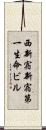 西新宿新宿第
一生命ビル